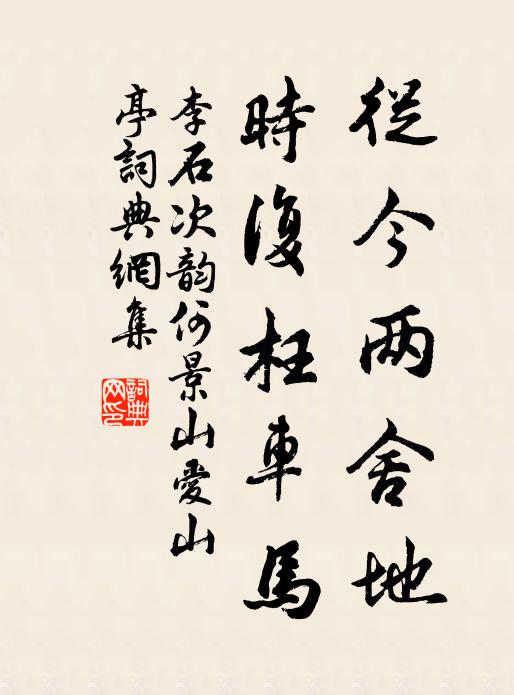 從今两舍地
時復枉車馬
李石次韵何景山愛山
亭詞典網集
詞典网印